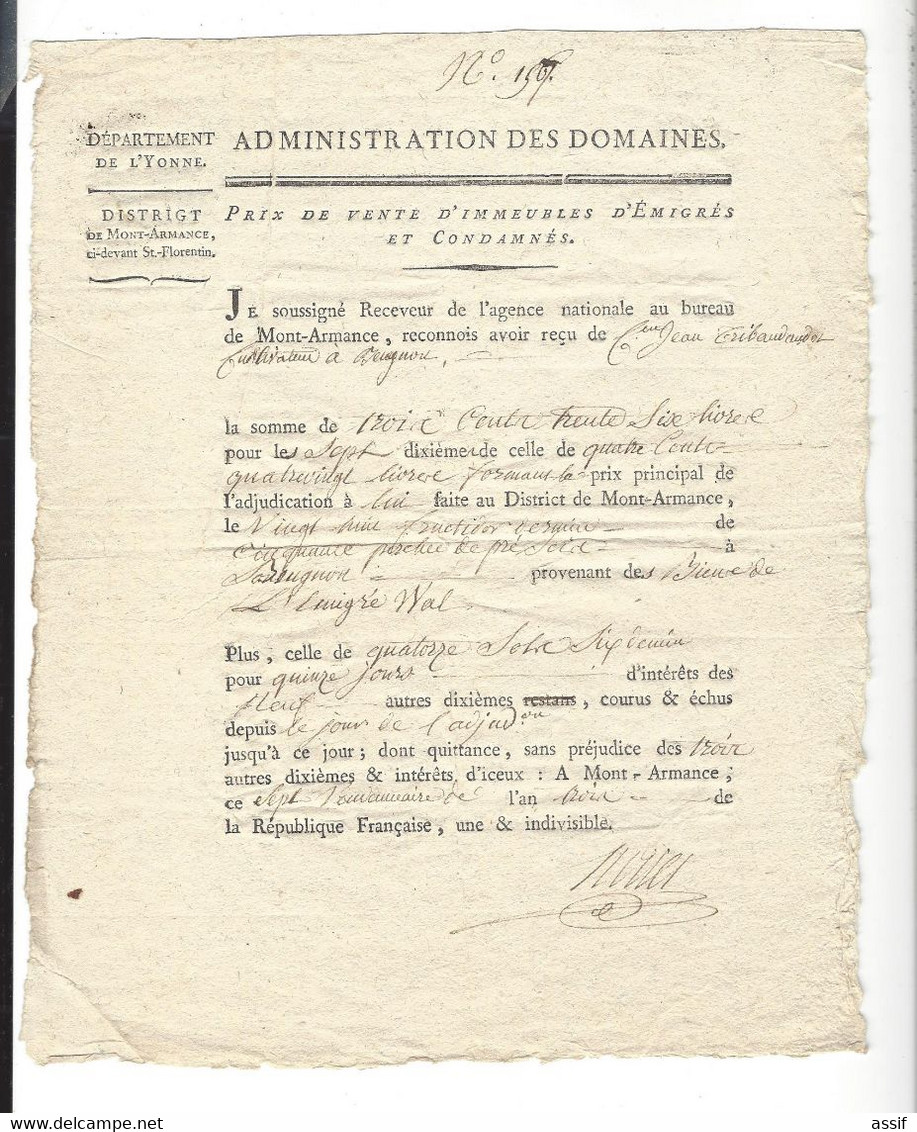 N.º 156.
DÉPARTEMENT
DE L'YONNE.
DISTRICT
DE MONT-ARMANCE,
ci-devant St.-Florentin.
ADMINISTRATION DES DOMAINES.
PRIX DE VENTE D'IMMEUBLES D'ÉMIGRÉS
ET CONDAMNÉS.
JE soussigné Receveur de l'agence nationale au bureau
de Mont-Armance, reconnois avoir reçu de C.en Jean Tribaudaudot
Cultivateur a Beugnon,
la somme de trois Cents trente Six livres
pour les Sept dixièmes de celle de quatre Cents
quatrevingt livres formant le prix principal de
l'adjudication à lui faite au District de Mont-Armance,
le Vingt deux fructidor dernier de
Cinquante perches de pré Scis à
Beugnon provenant des Biens de
L'émigré Wal
Plus, celle de quatorze Sols Six denier
pour quinze jours d'intérêts des
Neuf autres dixièmes restans, courus & échus
depuis le jour de l'adjud.on
jusqu'à ce jour; dont quittance, sans préjudice des trois
autres dixièmes & intérêts d'iceux : A Mont-Armance,
ce Sept Vendemiaire de l'an trois de
la République Française, une & indivisible.
assif